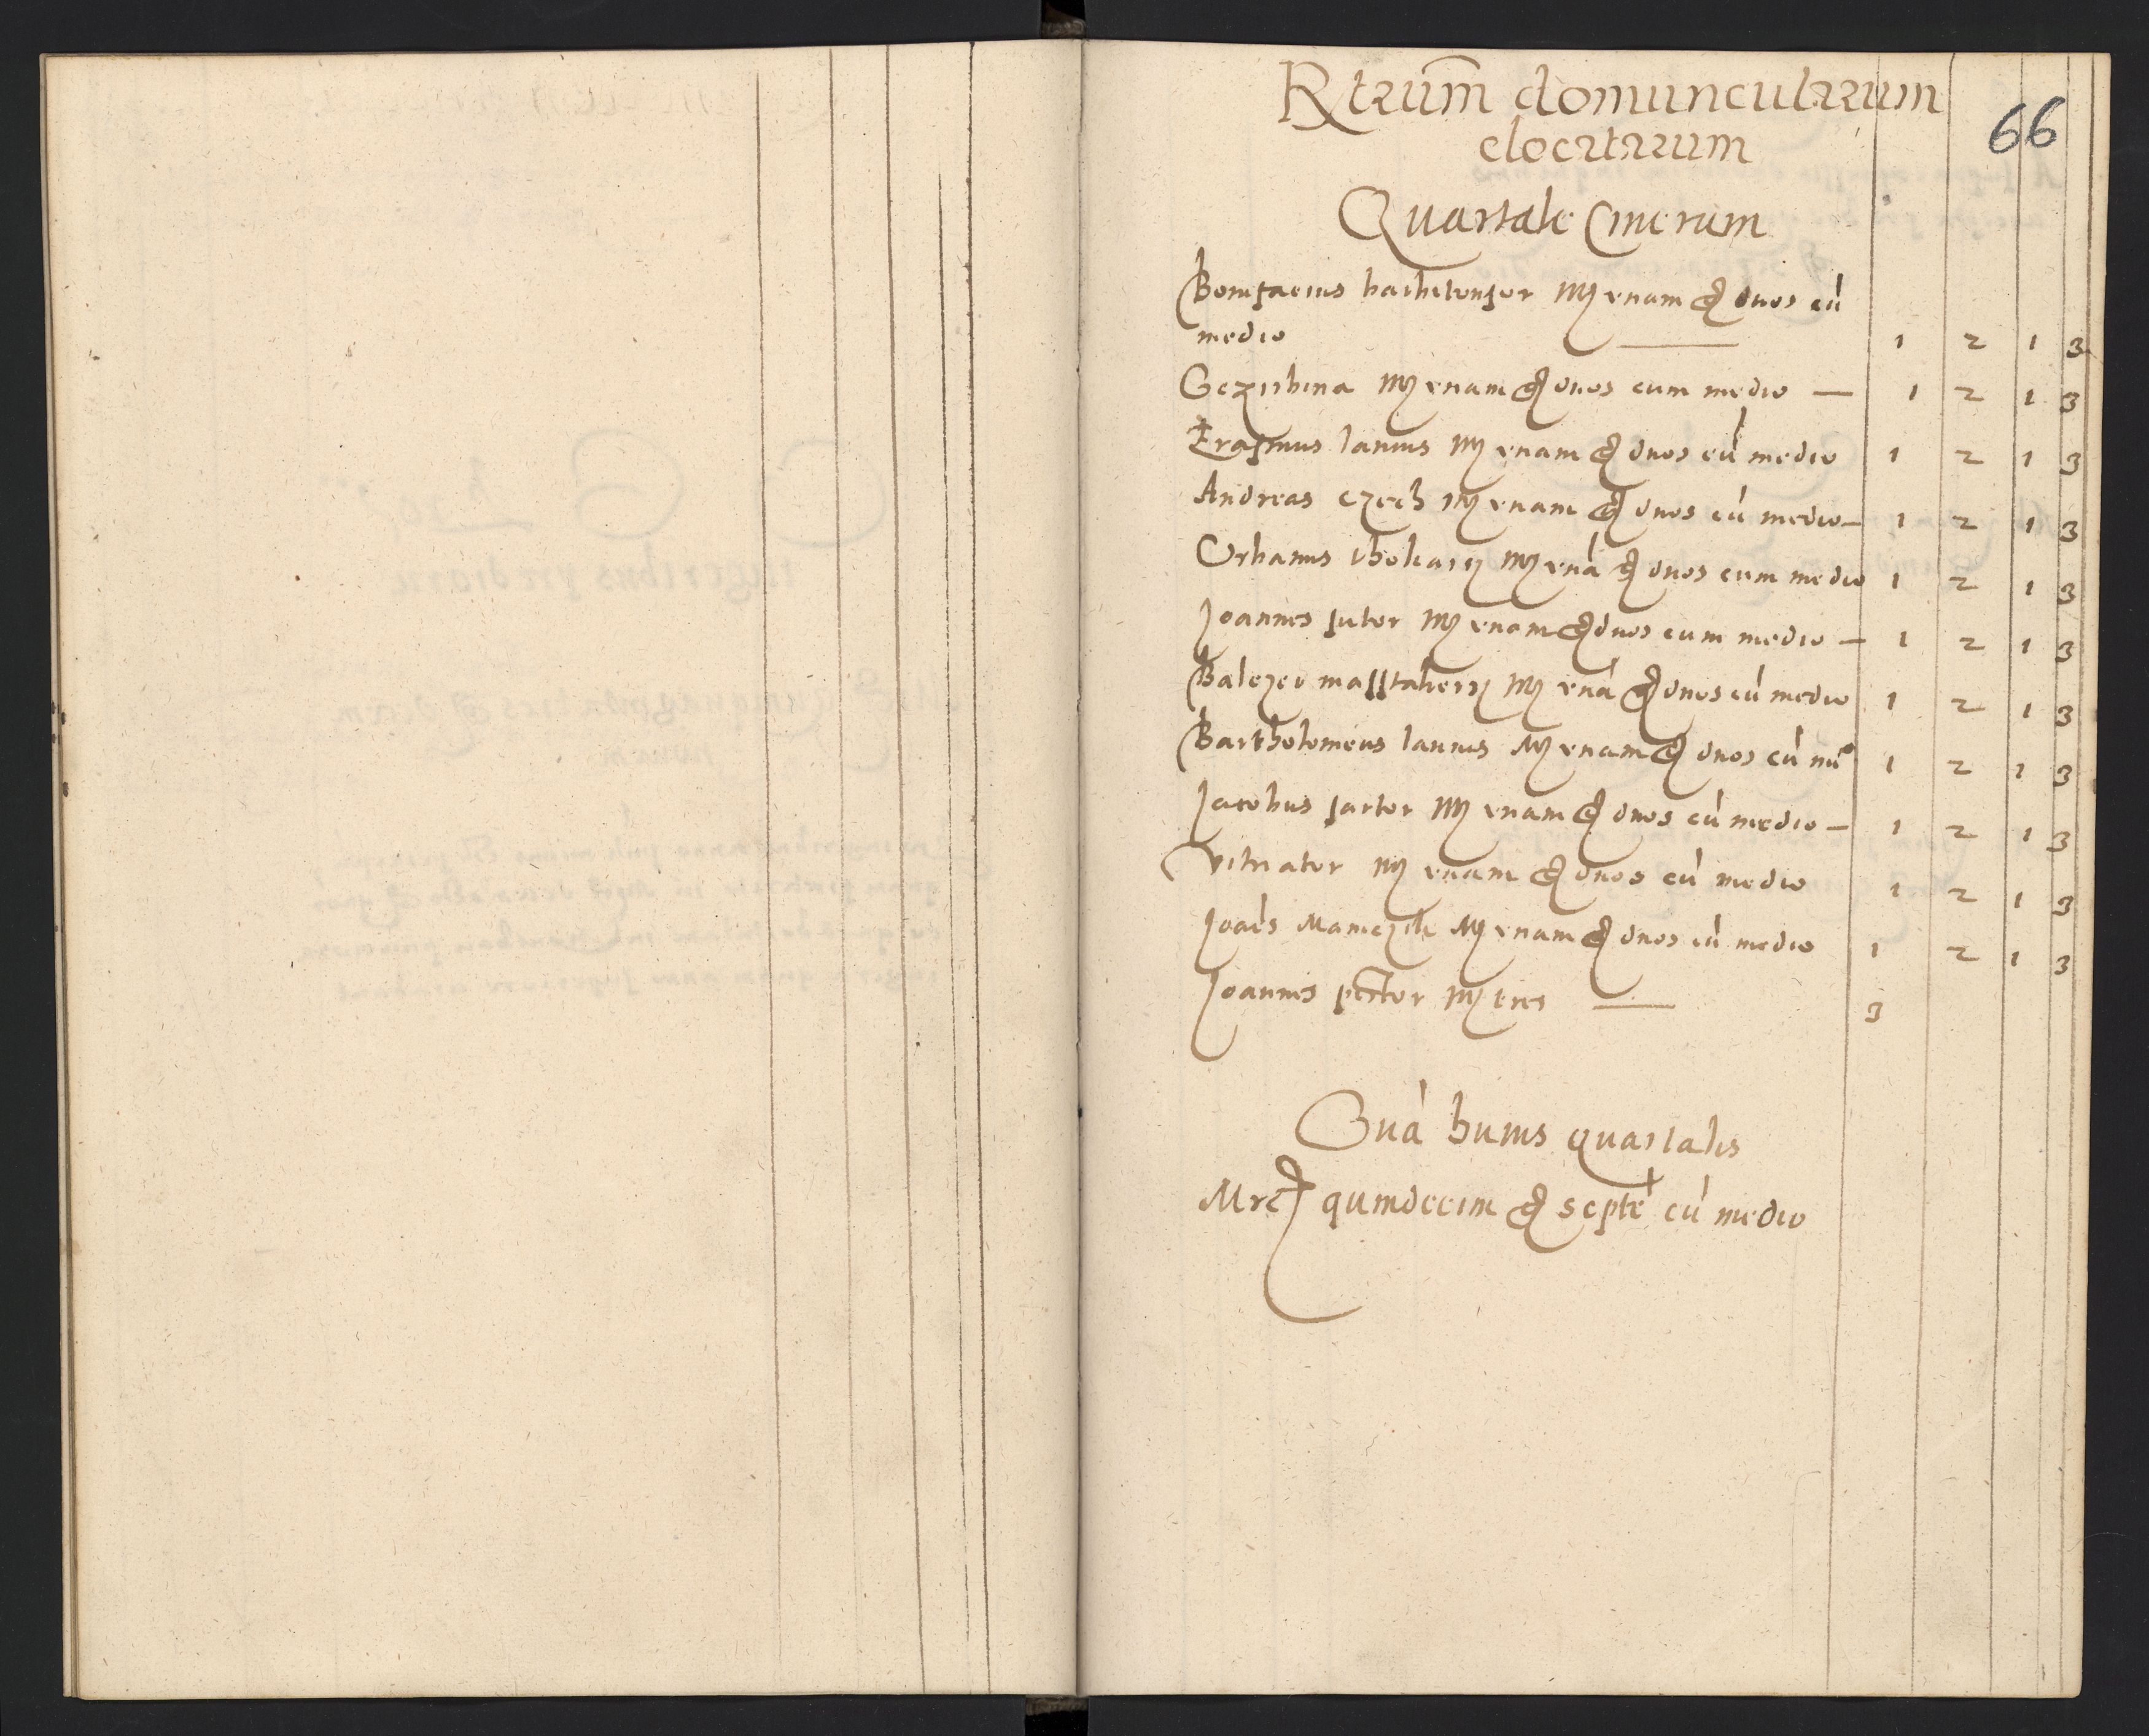 Rtrum̅ domuncularum
elocatarum
66
Quartale Cinerum
Bonifacius barbitonsor Mr vnam gr duos cū
medio — 1 2 1 3
Gczubina Mr vnam gr duos cum medio — 1 2 1 3
Erasmus lanius Mr vnam gr duos cū medio 1 2 1 3
Andreas czech Mr vnam gr duos cū medio — 1 2 1 3
Vrbanus Mr vnā gr duos cum medio 1 2 1 3
Joannes sutor Mr vnam gr duos cum medio — 1 2 1 3
Balczer masstalierz Mr vnā gr duos cū medio 1 2 1 3
Bartholomeus lanius Mr vnam gr duos cū mᵒ 1 2 1 3
Jacobus sartor Mr vnam gr duos cū medio — 1 2 1 3
Vitriator Mr vnam gr duos cū medio 1 2 1 3
Joaēs Manczik Mr vnam gr duos cū medio 1 2 1 3
Joannes pictor Mr tres — 3
Suā huius quartalis
Mrc quindecim gr septē cū medio